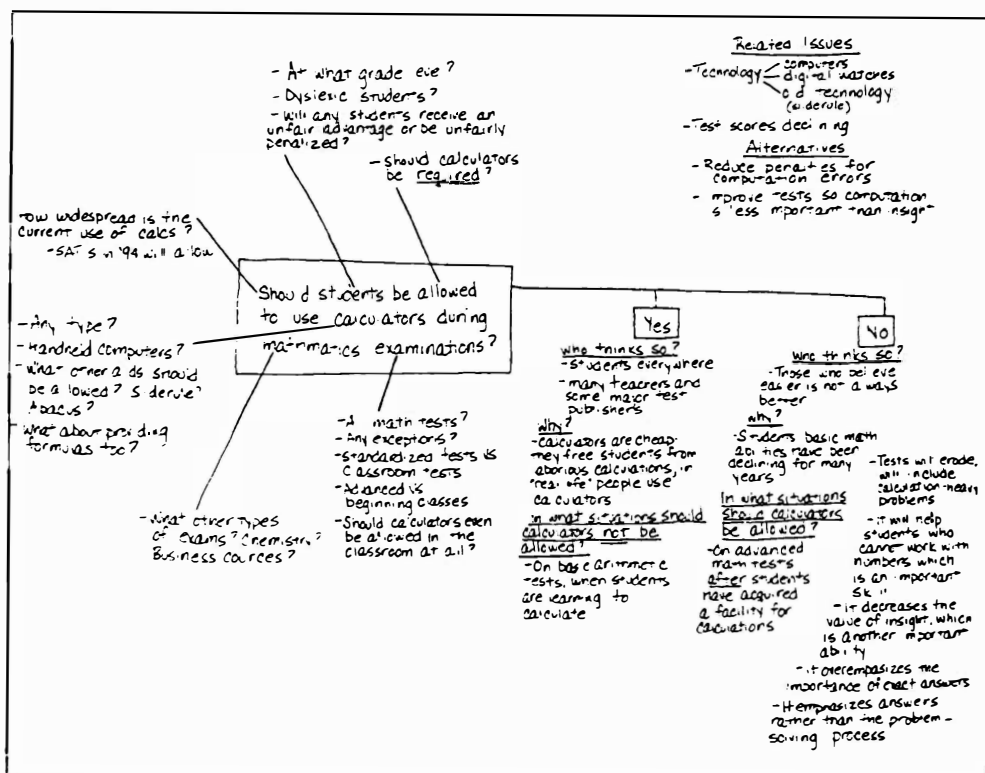 Related Issues
- Technology
computers
digital watches
old technology
(sliderule)
- Test scores declining
Alternatives
- Reduce penalties for
computation errors
- Improve tests so computation
is less important than insight
- At what grade level?
- Dyslexic students?
- Will any students receive an
unfair advantage or be unfairly
penalized?
- Should calculators
be required?
How widespread is the
current use of calcs?
- SATs in '94 will allow
Should students be allowed
to use calculators during
mathmatics examinations?
- Any type?
- Handheld computers?
- What other aids should
be allowed? Sliderule?
Abacus?
What about providing
formulas too?
- What other types
of exams? Chemistry?
Business cources?
- All math tests?
- Any exceptions?
- Standardized tests vs
Classroom tests
- Advanced vs
beginning classes
- Should calculators even
be allowed in the
classroom at all?
Yes
Who thinks so?
- Students everywhere
- many teachers and
some major test
publishers
Why?
- Calculators are cheap.
They free students from
laborious calculations, in
"real life" people use
calculators
In what situations should
calculators not be
allowed?
- On basic arithmetic
tests, when students
are learning to
calculate
No
Who thinks so?
- Those who believe
easier is not always
better
Why?
- Students basic math
abilities have been
declining for many
years
In what situations
should calculators
be allowed?
- On advanced
math tests
after students
have acquired
a facility for
calculations
- Tests will erode,
will include
calculation-heavy
problems
- it will help
students who
cannot work with
numbers which
is an important
skill
- it decreases the
value of insight, which
is another important
ability
- it overempasizes the
importance of exact answers
- It emphasizes answers
rather than the problem-
solving process